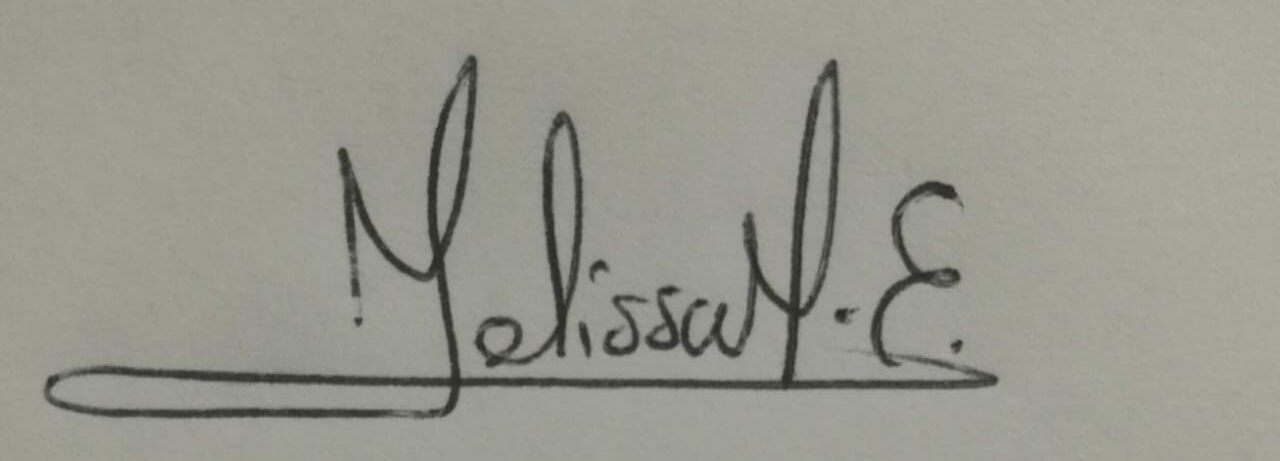 Melissa M. E.